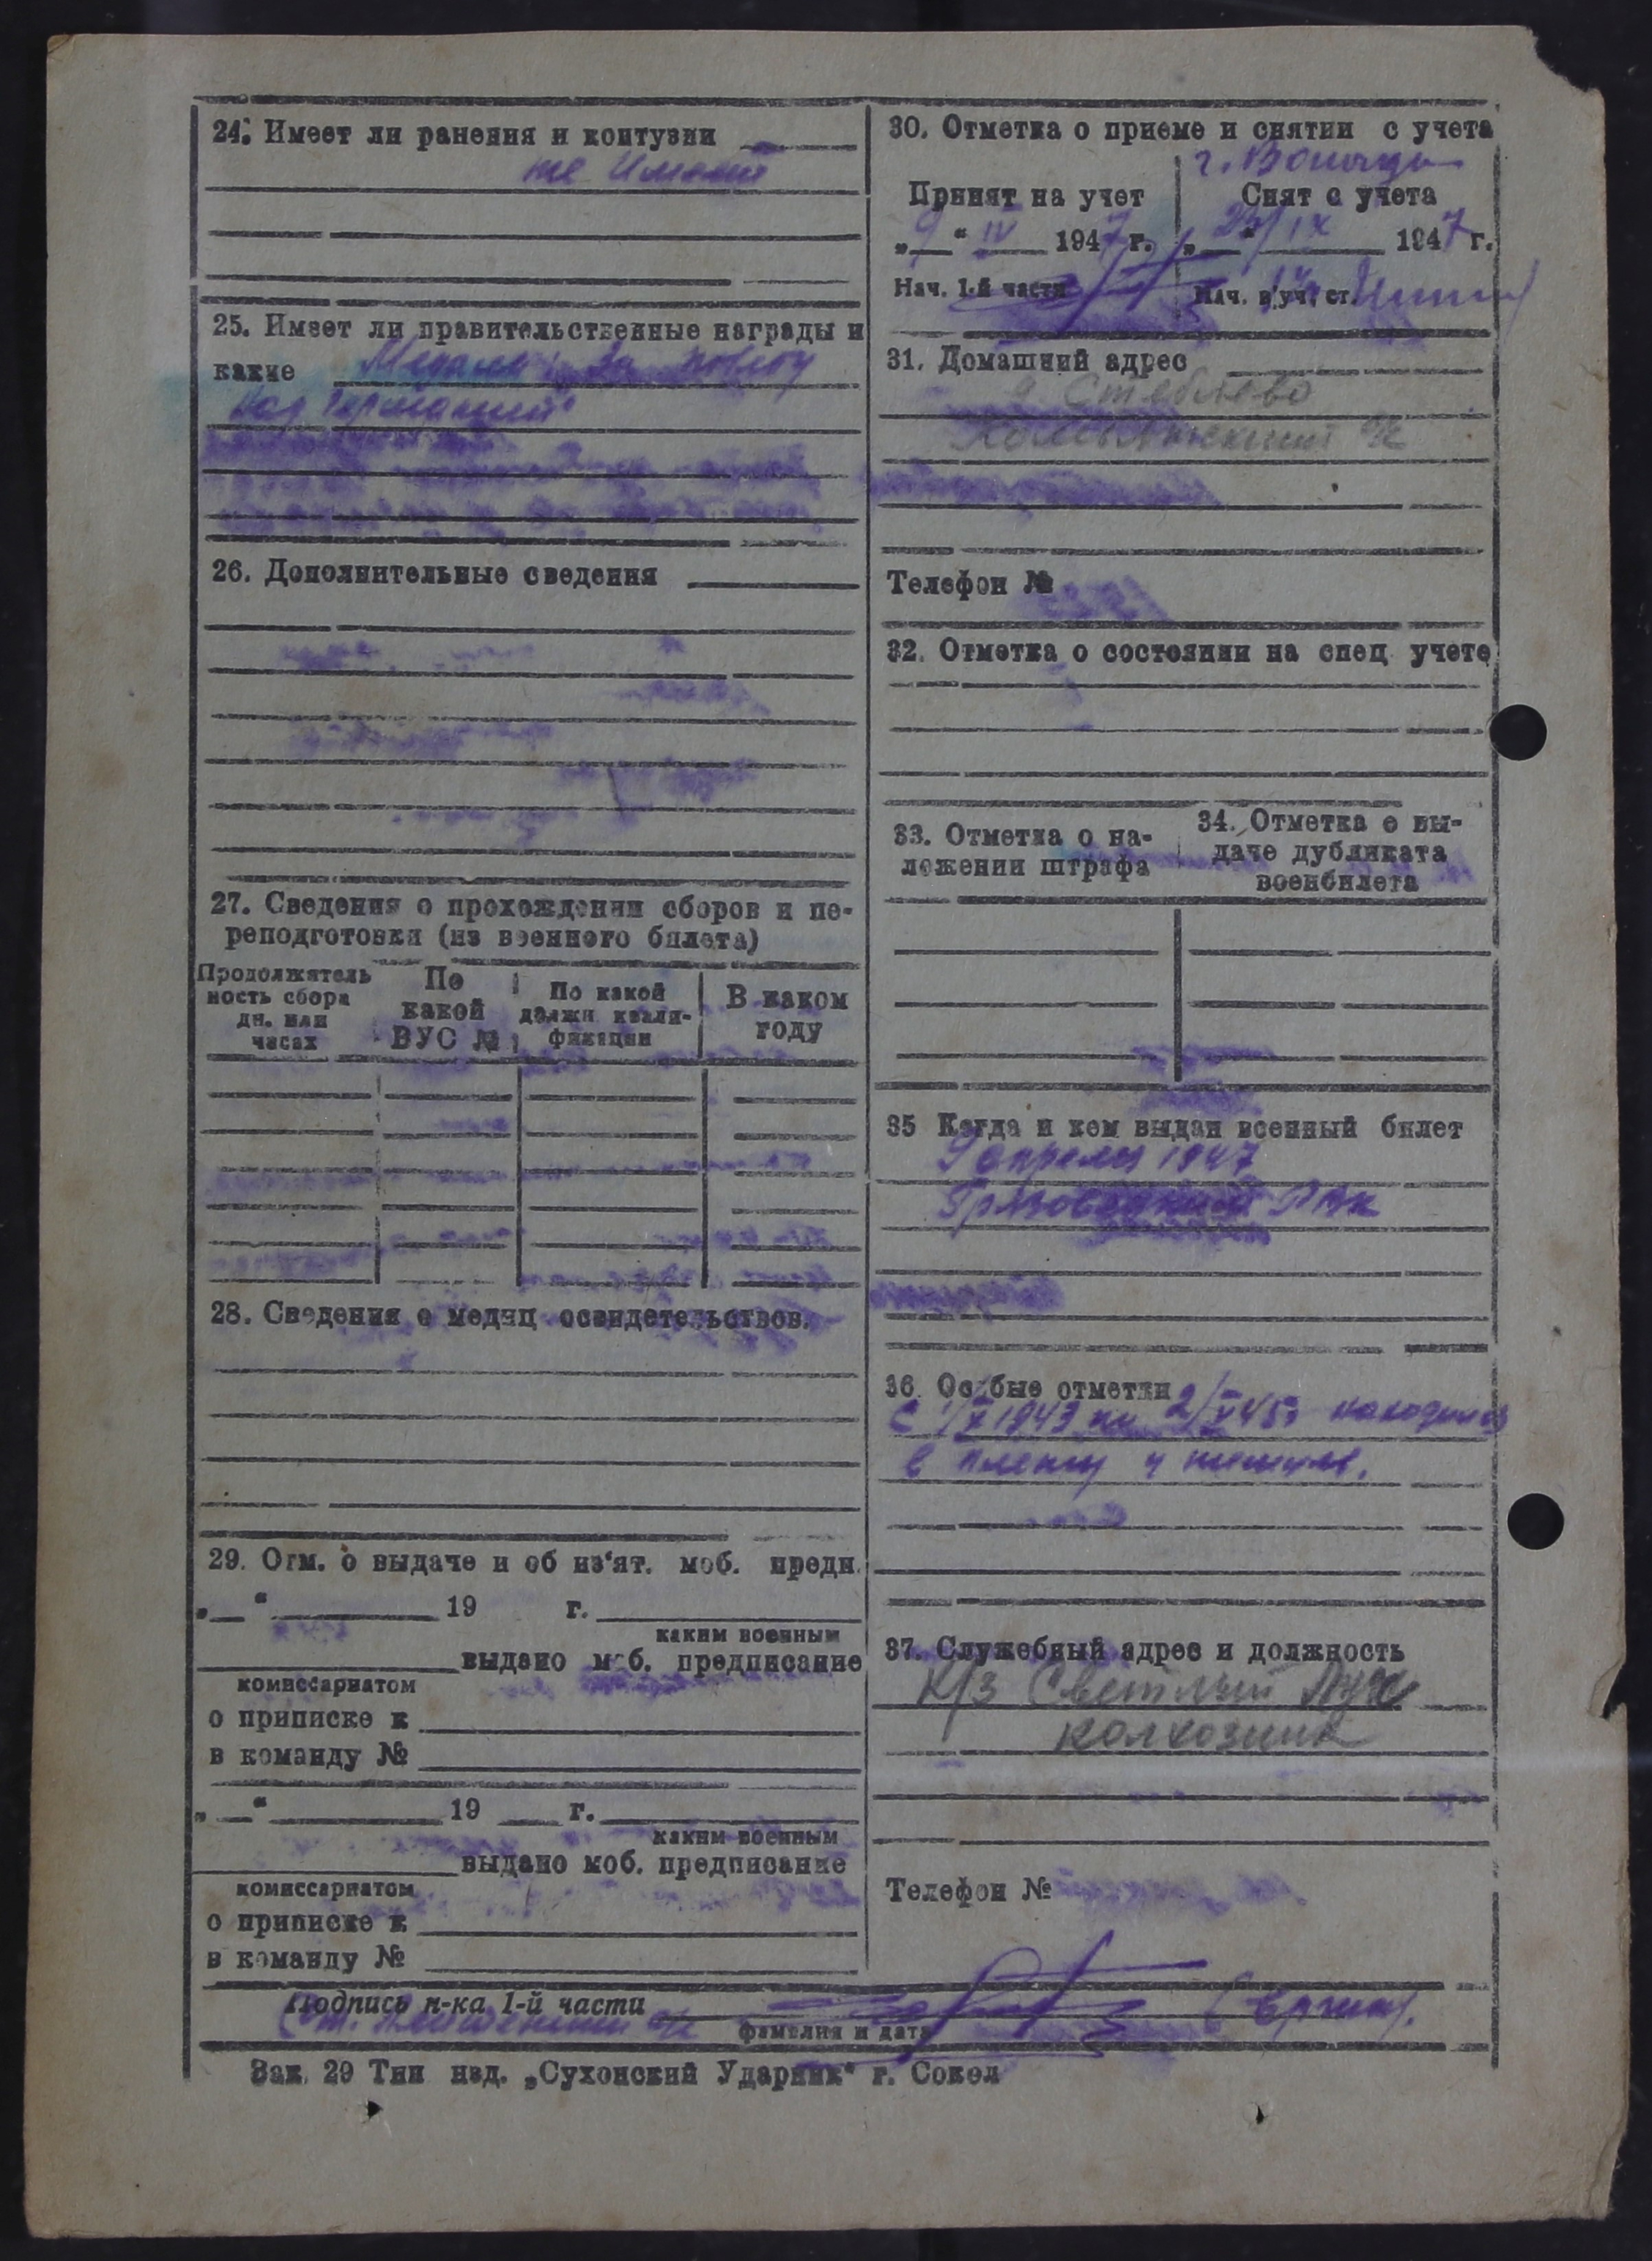 24. Имеет ли ранения и контузии
не имеет
25. Имеет ли правительственные награды и
какие Медаль: За победу
над Германией"
26. Дополнительные сведения
27. Сведения о прохождении сборов и пе-
реподготовки (из военного билета)
Продолжитель
ность сбора
дн. или
часах
По
какой
ВУС №
По какой
должн квали-
фикации
В каком
году
28. Сведения о медиц освидетельствов.
29. Отм. о выдаче и об из'ят. моб. предп.
„ " 19 г.
каким военным
выдано моб. предписание
комиссариатом
о приписке к
в команду №
„ " 19 г.
каким военным
выдано моб. предписание
комиссариатом
о приписке к
в команду №
30. Отметка о приеме и снятии с учета
г. Вологда
Принят на учет
„9" IV 1947 г.
Нач. 1-й части
Снят с учета
IX 1947 г.
Нач. в/уч. ст.
31. Домашний адрес
д Стеблево
Телефон №
32. Отметка о состоянии на спец учете
33. Отметка о на-
ложении штрафа
34. Отметка о вы-
даче дубликата
военбилета
35 Когда и кем выдан военный билет
9 апреля 1947
Грязовецкий РВК
36 Особые отметки
С 1943 по 2/V 45г находился
в плену у немцев.
37. Служебный адрес и должность
К/з Светлый Луч
колхозник
Телефон №
Подпись н-ка 1-й части
фамилия и дата
Зак. 29 Тип изд. „Сухонский Ударник" г. Сокол